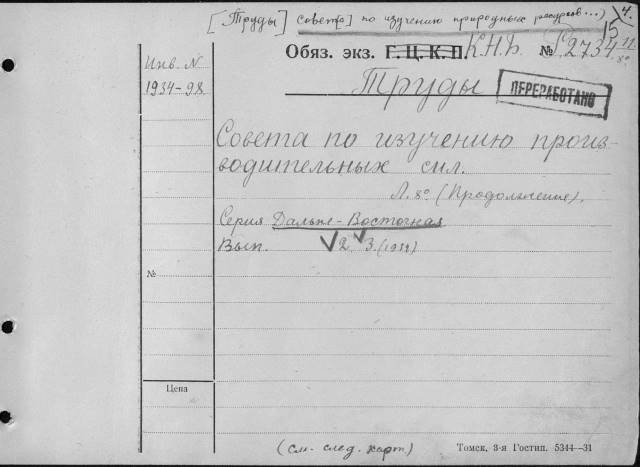 [Труды] совет[а] по изучению природных ресурсов...) 4.
15
Обяз. экз. Г. Ц. К. П. К.Н.Б. № 12734 11
8°
Инв. N
1934-98
Труды
ПЕРЕРАБОТАНО
Совета по изучению произ-
водительных сил.
Л. 8° (Продолжение).
Серия Дальне-Восточная
Вып. √2 √3. (1934)
№
Цена
(см. след. карт)
Томск, 3-я Гостип. 5344—31